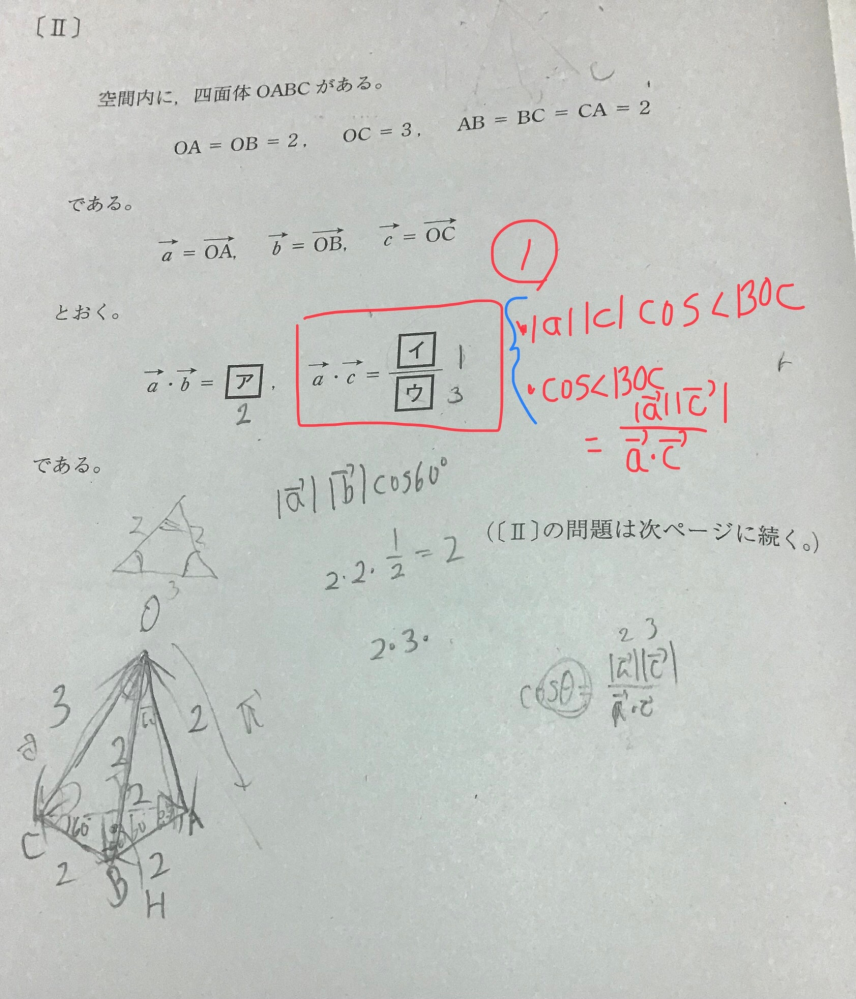 〔Ⅱ〕
空間内に, 四面体 OABC がある。
OA = OB = 2, OC = 3, AB = BC = CA = 2
である。
a⃗ = OA⃗, b⃗ = OB⃗, c⃗ = OC⃗
とおく。
①
a⃗・b⃗ = ア, a⃗・c⃗ = イ/ウ
2
1
3
・|a||c| cos∠BOC
・cos∠BOC
= |a⃗||c⃗| / a⃗・c⃗
である。
|a⃗| |b⃗| cos60°
2・2・1/2 = 2
(〔Ⅱ〕の問題は次ページに続く。)
2・3・
2 3
cosθ = |a⃗||c⃗| / a⃗・c⃗
2 2
3
O
3 2 2
2
C 60° A
2 B 2
H